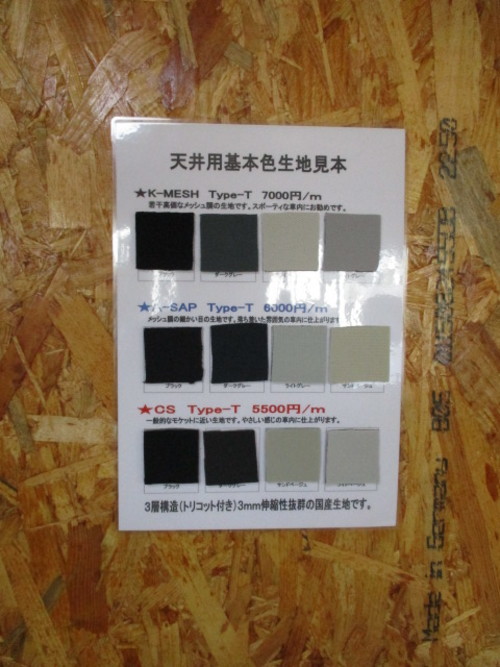 天井用基本色生地見本
★K-MESH Type-T 7000円/m
若干高級なメッシュ調の生地です。スポーティな車内にお勧めです。
ダークグレー
★A-SAP Type-T 6000円/m
メッシュ調の細かい目の生地です。落ち着いた雰囲気の車内に仕上がります
ブラック ダークグレー ライトグレー
★CS Type-T 5500円/m
一般的なモケットに近い生地です。やさしい感じの車内に仕上がります。
ブラック サンドベージュ
3層構造(トリコット付き)3mm伸縮性抜群の国産生地です。
Made in Germany